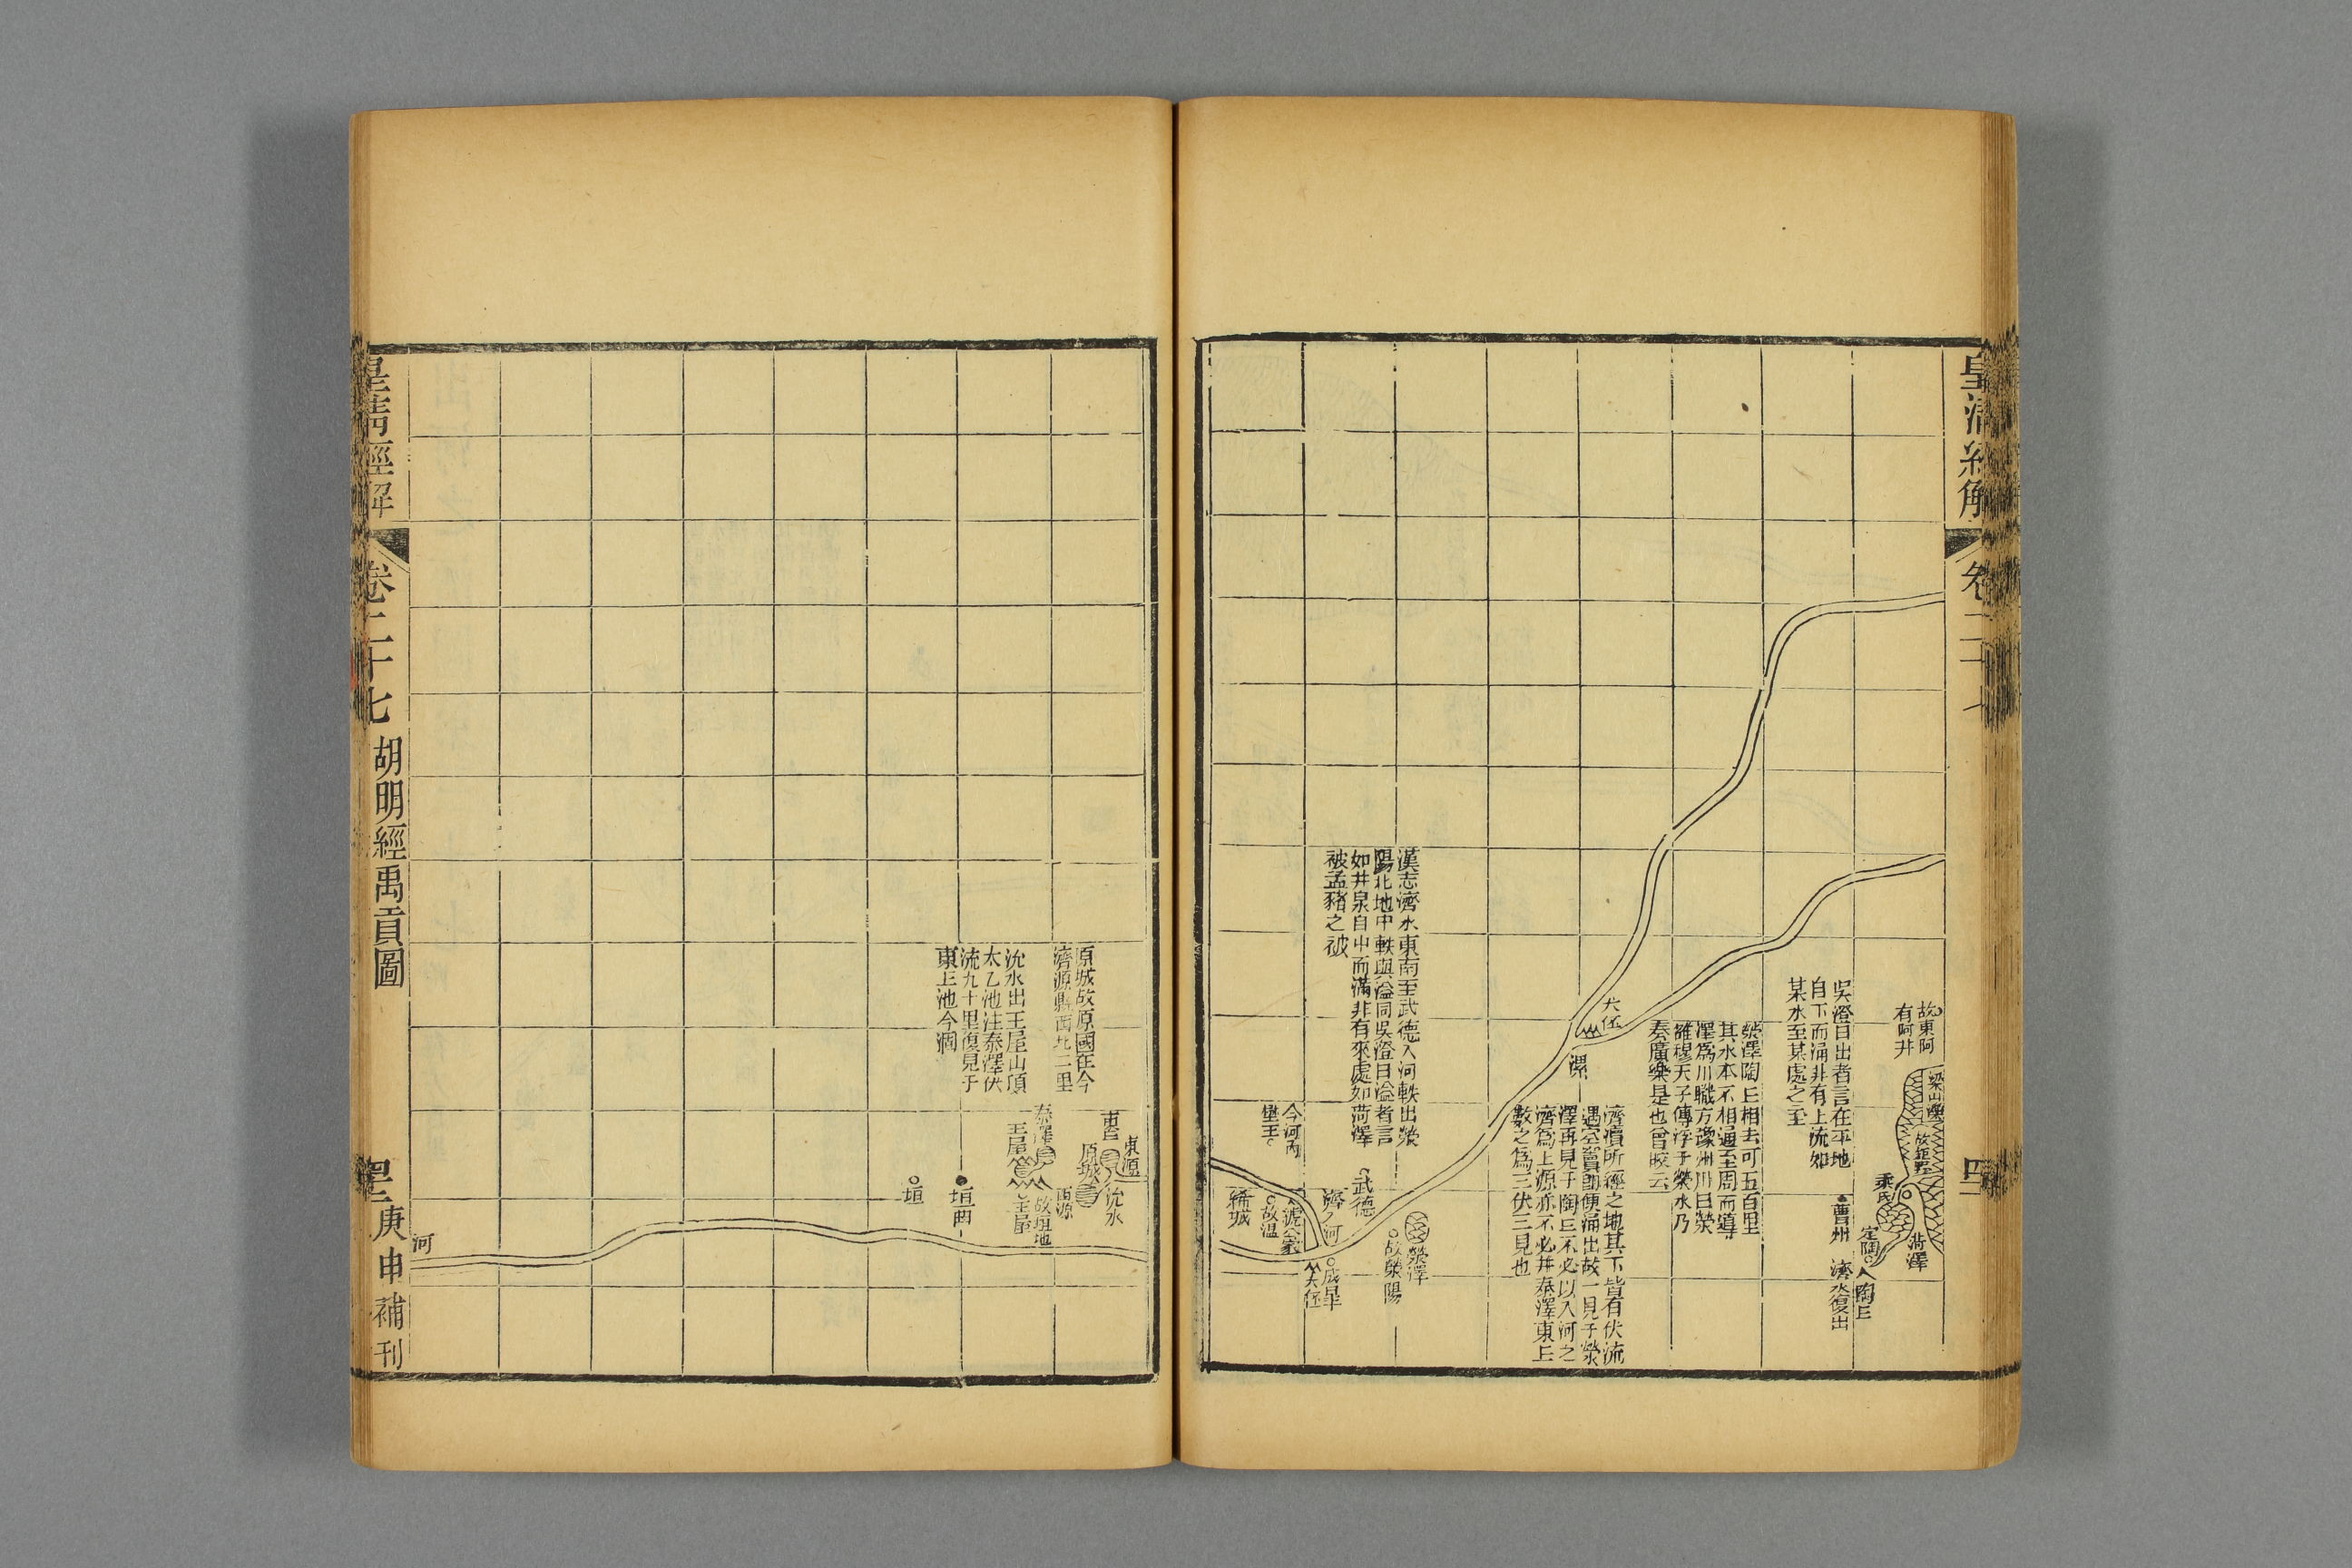 皇清經解
卷二十七
故東阿
有阿井
梁山濼
故鉅野
乘氏
菏澤
定陶
入陶丘
濟水復出
曹州
吳澄曰出者言在平地
自下而涌非有上流如
某水至某處之至
滎澤陶丘相去可五百里
其水本不相通至周而導
澤為川職方豫州川曰滎
雒穆天子傳浮于滎水乃
奏廣樂是也曾旼云
濟瀆所經之地其下皆有伏流
遇空竇即便涌出故一見于滎
澤再見于陶丘不必以入河之
濟為上源亦不必幷泰澤東丘
數之為三伏三見也
大伾
漯
漢志濟水東南至武德入河軼出滎
陽北地中軼與溢同吳澄曰溢者言
如井泉自中而滿非有來處如菏澤
被孟豬之被
滎澤
故滎陽
武德
濟入河
成皋
大伾
今河內
號公臺
故溫
絺城
東源
沇水
原城
西源
原城故原國在今
濟源縣西北二里
沇水出王屋山頂
太乙池注泰澤伏
流九十里復見于
東丘池今涸
泰澤
王屋
故垣地
王屋
垣曲
垣
河
皇清經解
卷二十七
胡明經禹貢圖
庚申補刊